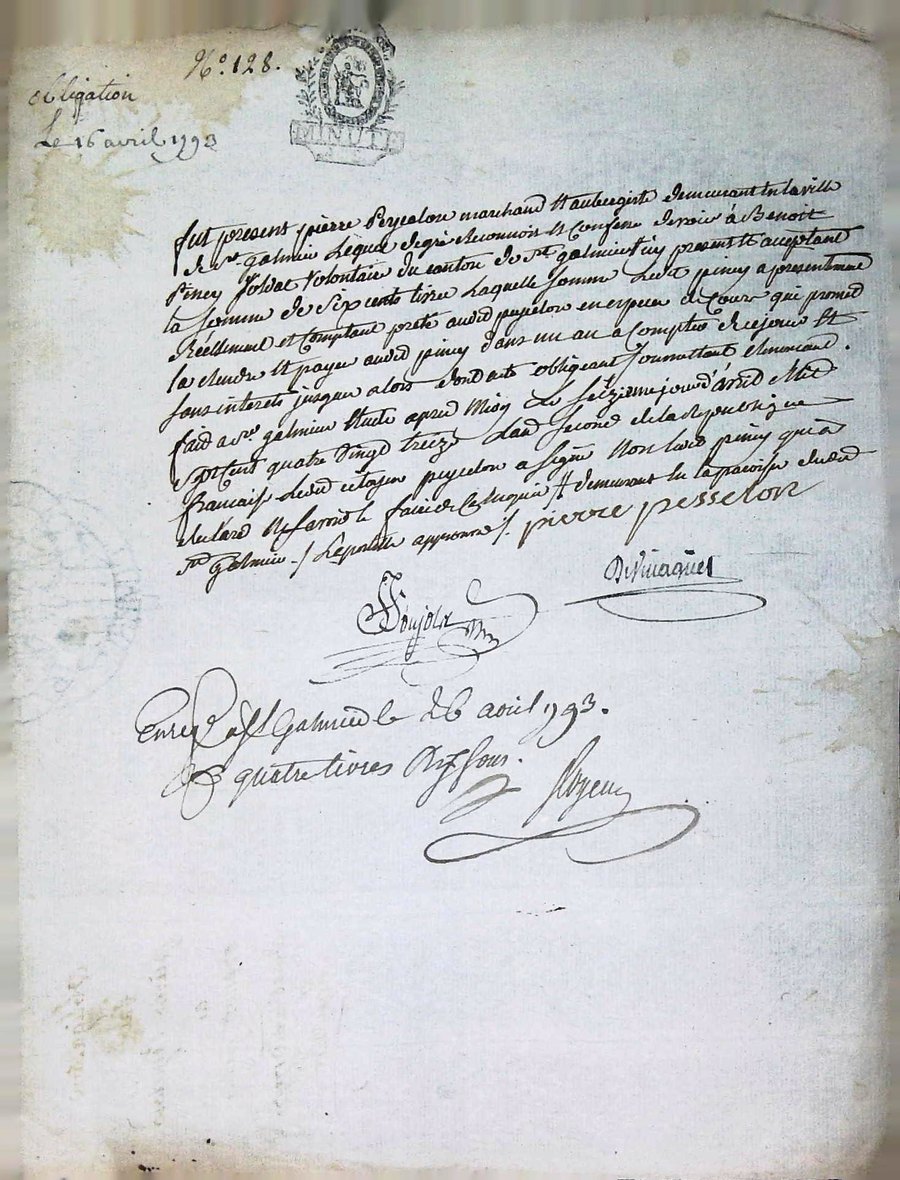 N.° 128.
obligation
Le 16 avril 1793
MINUTE
fut present pierre Peyselon marchand et aubergiste demeurant en la ville
de st. galmier Lequel de gré Reconnois et Confesse devoir à Benoit
Piney Soldat Volontaire du canton de st galmier present et acceptant
la Somme de Six cents livres Laquelle Somme Ledt piney a presentment
Réellement et Comptant preté audit peyselon en espece de Cour qui promet
la Rendre et payer audit piney dans un an a Compter de ce jour et
sans interets jusques alors dont acte obligeant Soumettant, Renoncant.
fait a st. galmier Etude apres Midy Le Seizieme jour d'avril Mil
Sept Cent quatre Vingt treize Land Second de la Republique
francaise Ledit citoyen peyselon a Signé Non Ledit piney qui a
declaré ne savoir le faire de ce Requis # demeurant en la paroisse dudit
st. galmier ./ approuvé /. pierre pesselon
Pé a St Galmier le 26 avril 1793.
quatre livres Six Sous.